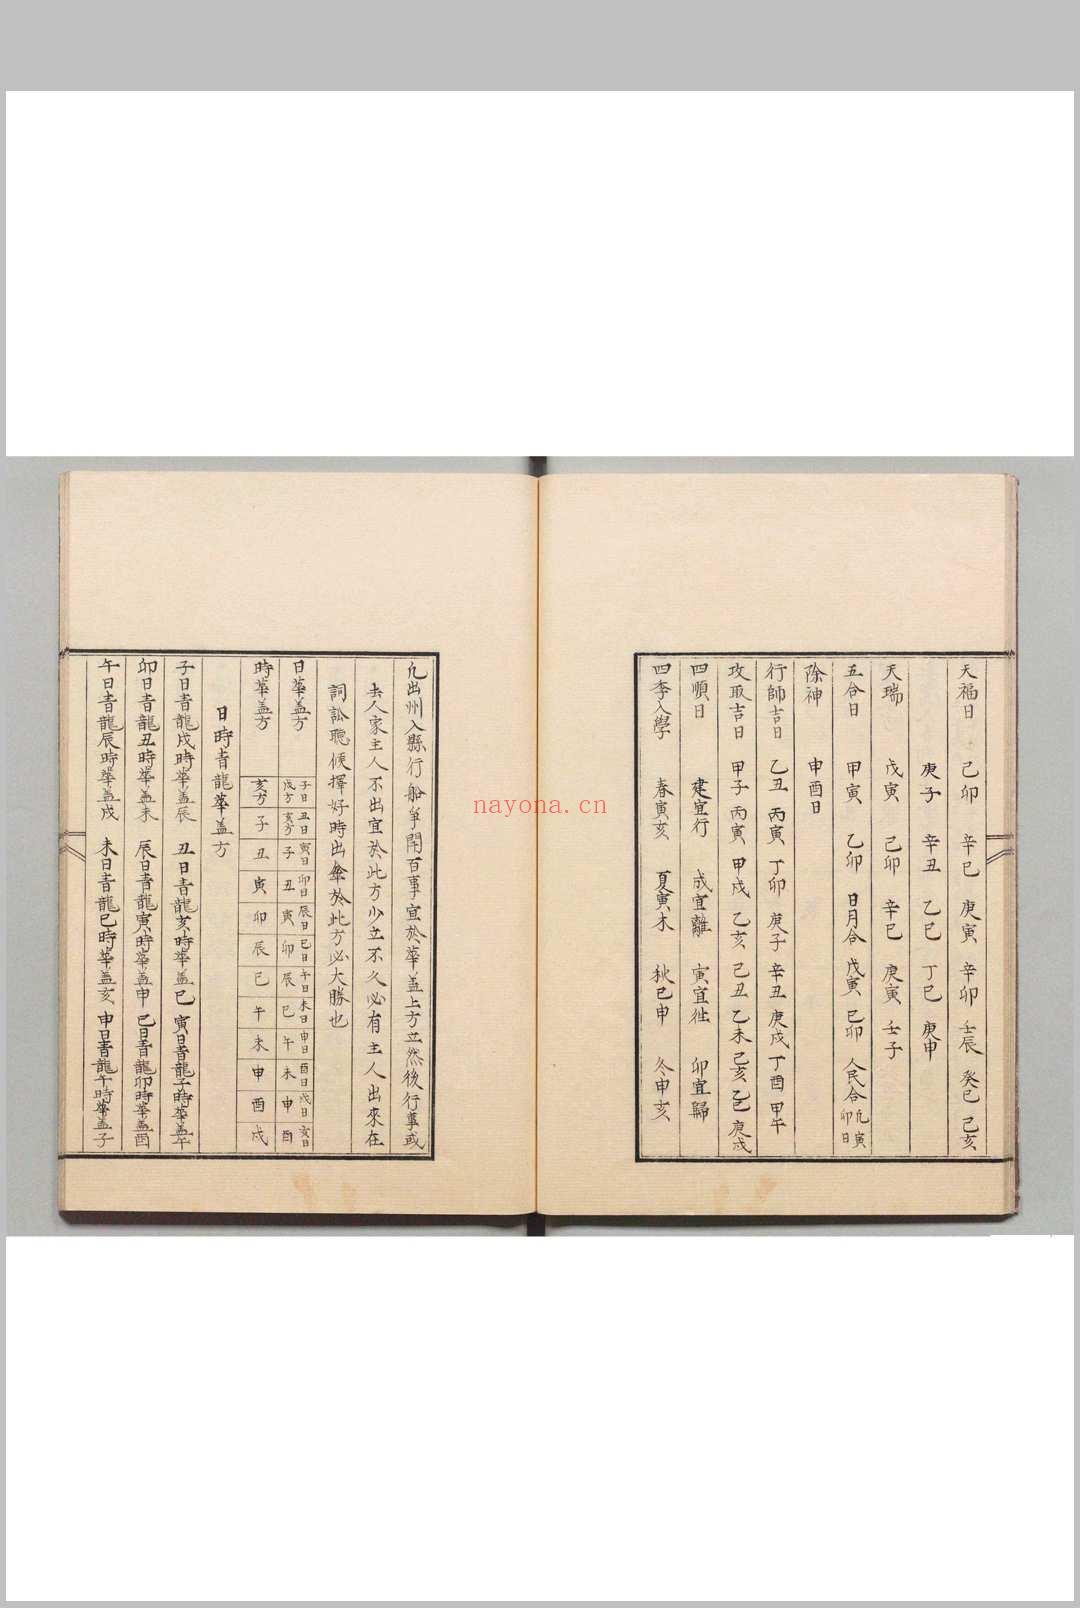 天福日 己卯 辛巳 庚寅 辛卯 壬辰 癸巳 己亥
庚子 辛丑 乙巳 丁巳 庚申
天瑞 戊寅 己卯 辛巳 庚寅 壬子
五合日 甲寅 乙卯 日月合 戊寅 己卯 人民合 凢寅卯日
除神 申酉日
行師吉日 乙丑 丙寅 丁卯 庚子 辛丑 庚戌 丁酉 甲午
攻取吉日 甲子 丙寅 甲戌 乙亥 己丑 乙未 己亥 乙巳 庚戌
四順日 建宜行 成宜離 寅宜徃 卯宜歸
四季入學 春寅亥 夏寅木 秋巳申 冬申亥
凢出州入縣行船爭鬧百事宜於華盖上方立然後行事或
去人家主人不出宜於此方少立不久必有主人出來在
詞訟聽候擇好時出傘於此方必大勝也
日華盖方 子日戌方 丑日亥方 寅日子 卯日丑 辰日寅 巳日卯 午日辰 未日巳 申日午 酉日未 戌日申 亥日酉
時華盖方 亥方 子 丑 寅 卯 辰 巳 午 未 申 酉 戌
日時青龍華盖方
子日青龍戌時華盖辰 丑日青龍亥時華盖巳 寅日青龍子時華盖午
卯日青龍丑時華盖未 辰日青龍寅時華盖申 巳日青龍卯時華盖酉
午日青龍辰時華盖戌 未日青龍巳時華盖亥 申日青龍午時華盖子
nayona.cn